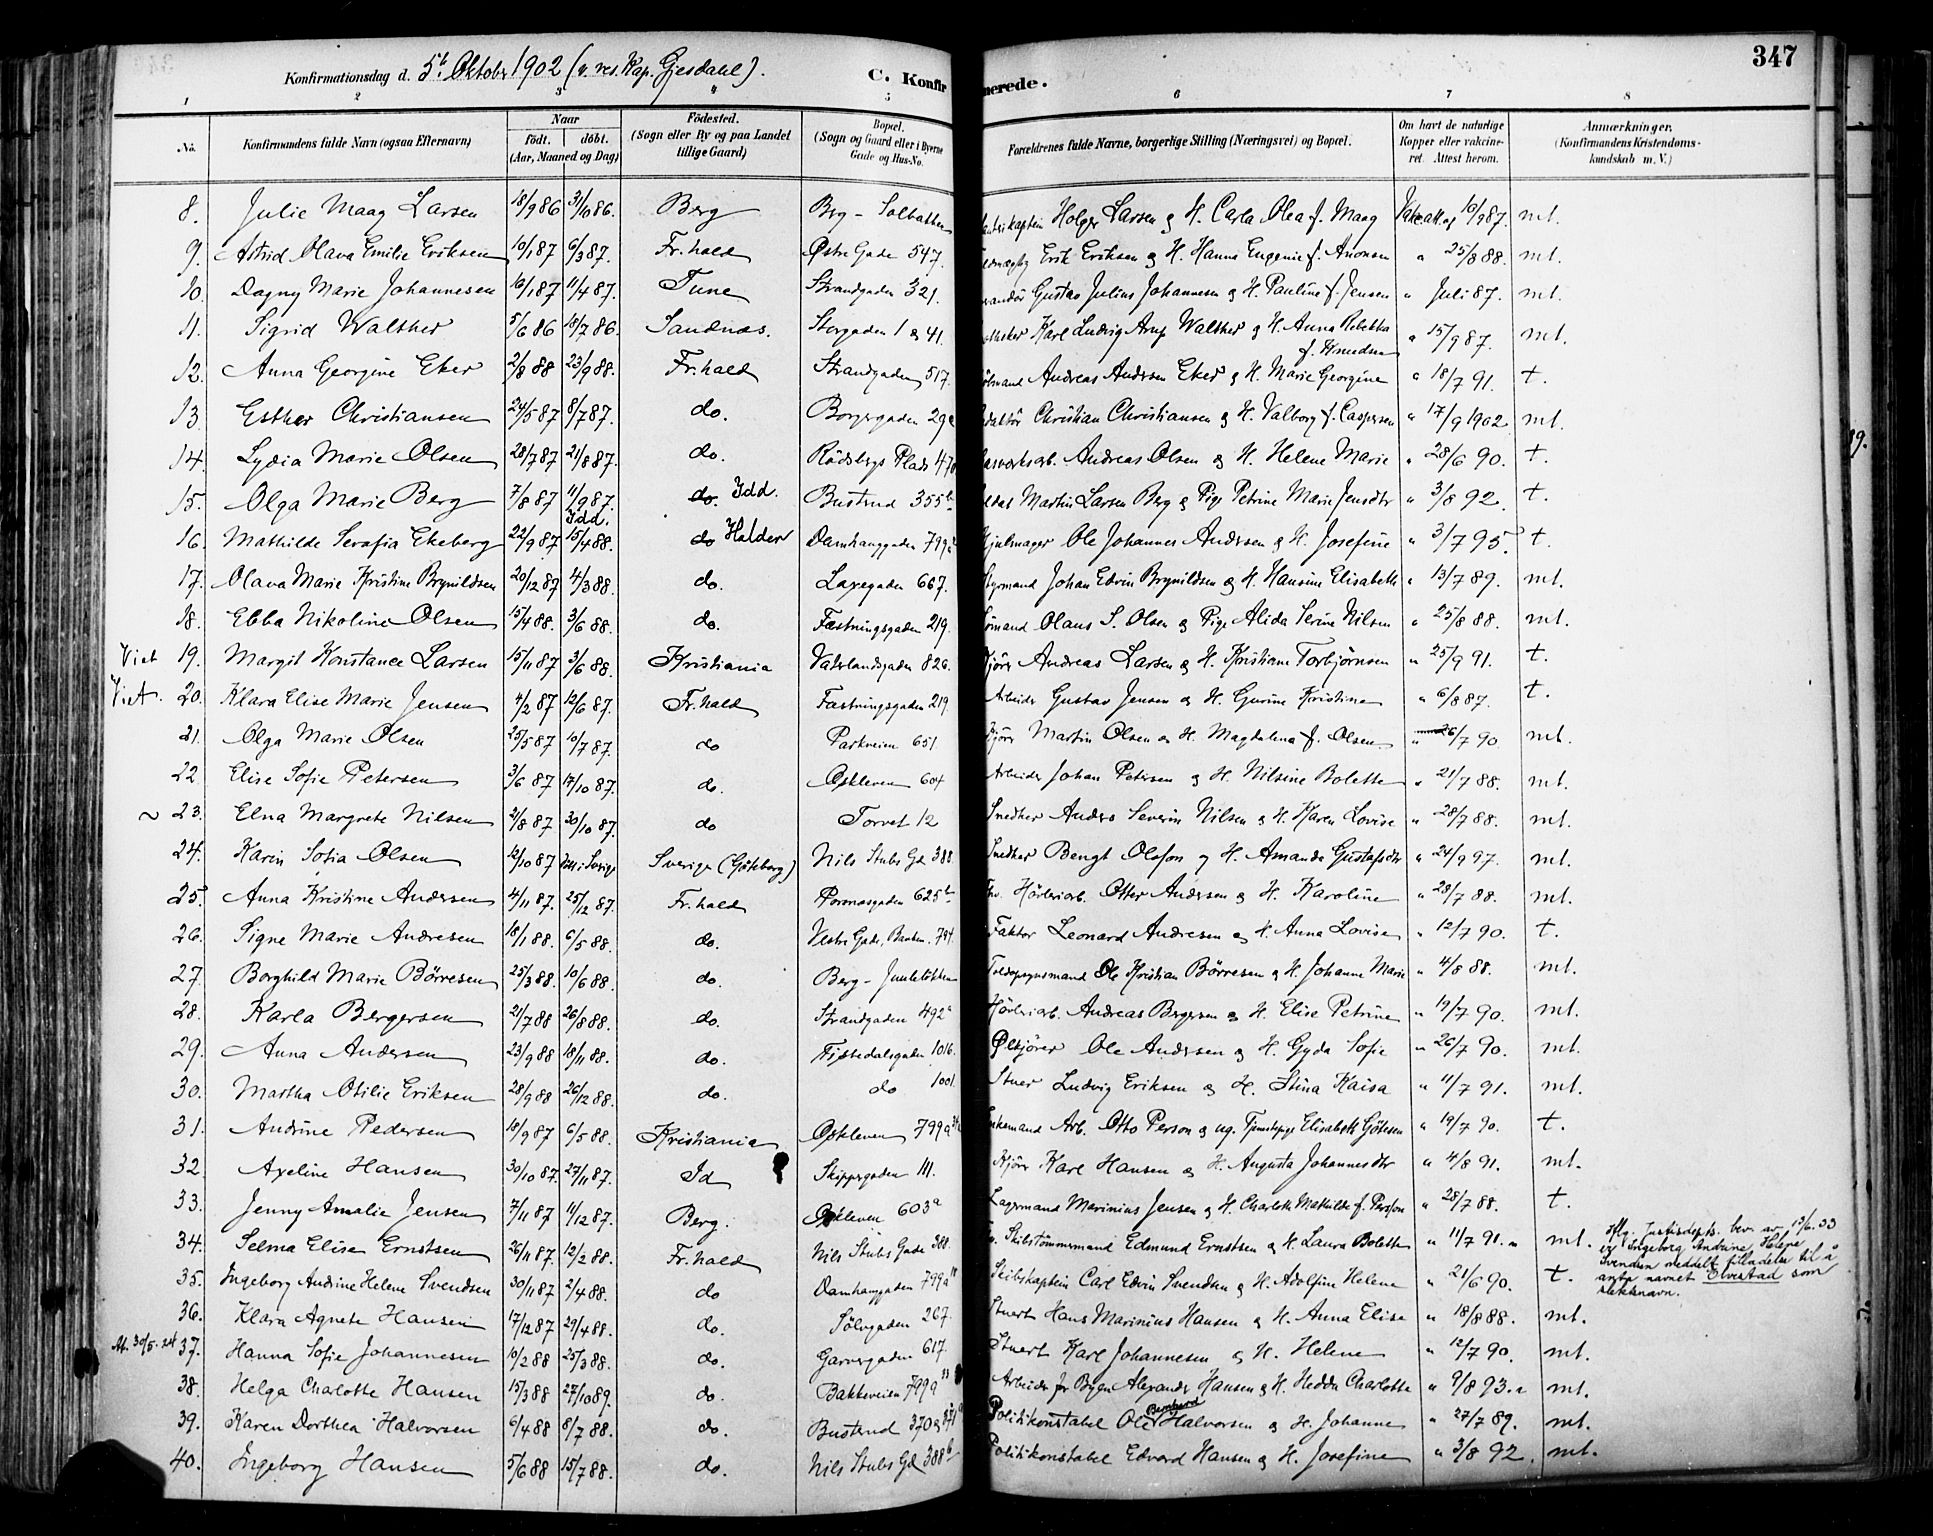 347
Konfirmationsdag d. 5t Oktobr 1902 (v. res. Kap. Gjesdahl).
C. Konfir merede.
1 2 3 4 5 6 7 8
No. Konfirmandens fulde Navn (ogsaa Efternavn) Naar født. døbt. (Aar, Maaned og Dag) Fødested. (Sogn eller By og paa Landet tillige Gaard) Bopæl. (Sogn og Gaard eller i Byerne Gade og Hus-No. Forældrenes fulde Navne, borgerlige Stilling (Næringsvei) og Bopæl. Om havt de naturlige Kopper eller vakcineret. Attest herom. Anmærkninger. (Konfirmandens Kristendomskundskab m. V.)
8. Julie Maag Larsen 18/9 86 31/10 86. Berg Berg - Holger Larsen & H. Carla Olea f. Maag 16/9 87. mt.
9. Astrid Olava Emilie Eriksen 10/1 87 6/3 87. Fr.hald Østre Gade 547. Erik Eriksen & H. Hanna Eugenie f. Anonsen " 25/8 88. mt.
10. Dagny Marie Johannesen 16/1 87 11/4 87. Tune Strandgaden 321. Gustav Julius Johannesen & H. Pauline f. Jensen " Juli 87. mt.
11. Sigrid Walther 5/6 86 18/7 86. Sandnæs. Storgaden 1 & 41. Karl Ludvig Arup Walther & H. Anna Rebekka f. Knudsen " 15/9 87. mt.
12. Anna Georgine Eker 2/8 88 23/9 88. Fr.hald Strandgaden 517. Andreas Andersen Eker & H. Marie Georgine " 18/7 91. t.
13. Esther Christiansen 24/5 87 8/7 87. do. Borgergaden 29a daktör Christian Christiansen & H. Valborg f. Caspersen " 17/9 1902 mt.
14. Lydia Marie Olsen 28/7 87 21/8 87. do. Rødsbergs Plads 470 Andreas Olsen & H. Helene Marie " 28/6 90. t.
15. Olga Marie Berg 7/8 87 11/9 87. do. Idd. Bustrud 355b Martin Larsen Berg & Pige Petrine Marie Jensdtr " 3/8 92. t.
16. Mathilde Serafia Ekeberg 22/9 87 Idd. 15/4 88. do Halden Damhauggaden 799a Hjulmager Ole Johannes Andersen & H. Josefine " 3/7 95. t.
17. Olava Marie Kristine Brynildsen 20/12 87 4/3 88. do. Laxegaden 667. Styrmand Johan Edvin Brynildsen & H. Hansine Elisabeth " 13/7 89. mt.
18. Ebba Nikoline Olsen 15/4 88. 3/6 88. do. Fæstningsgaden 219. Sömand Olaus S. Olsen & Pige Alida Serine Nilsen " 25/8 88. mt.
Viet 19. Margit Konstance Larsen 15/11 87 3/6 88. Kristiania Vaterlandsgaden 826. Kjörer Andreas Larsen & H. Kristiane Torbjörnsen " 25/9 91. t.
Viet. 20. Klara Elise Marie Jensen 4/2 87 12/6 87. Fr.hald Fæstningsgaden 219 Arbeider Gustav Jensen & H. Gurine Kristine " 6/8 87. t.
21. Olga Marie Olsen 25/5 87 10/7 87. do Parkveien 651. Kjörer Martin Olsen & H. Magdalena f. Olsen " 26/7 90. mt.
22 Elise Sofie Petersen 3/6 87 17/10 87. do. Oskleven 604 Arbeider Johan Petersen & H. Nilsine Bolette " 21/7 88. mt.
~ 23. Elna Margrete Nilsen 21/8 87 30/10 87. do Torvet 12 Snedker Anders Severin Nilsen & H. Karen Lovise " 28/7 88. mt.
24. Karin Sofia Olsen 12/10 87 i Sverige Sverige (Göteborg) Nils Stubs Gd 388. Snedker Bengt Olofson & H. Amanda Gustafsdtr " 24/9 97. mt.
25. Anna Kristine Andersen 4/11 87. 25/12 87. Fr.hald 625b Otter Andersen & H. Karoline " 28/7 88. mt.
26. Signe Marie Andresen 18/1 88. 6/5 88. do. Vestre Gade, Banken. 794. Faktor Leonard Andresen & H. Anna Lovise " 12/7 90. t.
27. Borghild Marie Börresen 25/3 88. 10/6 88. do. Berg - Toldopsynsmand Ole Kristian Börresen & H. Johanne Marie " 4/8 88. mt.
28. Karla Bergersen 21/7 88 26/8 88. do. Strandgaden 492a Hövleriarb. Andreas Bergersen & H. Elise Petrine " 19/7 90. mt.
29. Anna Andersen 23/9 88 18/11 88. do. Tistedalsgaden 1016. Ölkjörer Ole Andersen & H. Gyda Sofie " 26/7 90. mt.
30. Martha Otilie Eriksen 28/9 88 26/12 88. do. do 1001. Stuer Ludvig Eriksen & H. Stina Kaisa " 11/7 91. mt.
31. Andrine Pedersen 18/9 87 6/5 88. Kristiania Oskleven 799a Enkemand Arb. Otto Person & ug. Tjenestepige Elisabeth " 19/7 90. t.
32 Axeline Hansen 30/10 87. 27/11 87. Id Skippergaden 111. Kjörer Karl Hansen & H. Augusta Johannesdtr " 4/8 91. mt.
33. Jenny Amalie Jensen 7/11 87 11/12 87. Berg. Oskleven 603a Lagermand Marinius Jensen & H. Charlotte Mathilde f. Person " 28/7 88. t.
34. Selma Elise Ernstsen 26/11 87. 12/2 88. Fr.hald Nils Stubs Gade 388. Skibstömmermand Edmund Ernstsen & H. Laura Bolette " 11/7 91. mt.
35. Ingeborg Andrine Helene Svendsen 30/11 87 2/4 88. do Damhauggaden 799a Skibskaptein Carl Edvin Svendsen & H. Adolfine Helene " 21/6 90. t.
Iflg. Justisdepts. bev. av 13/6. 33
er Ingeborg Andrine Helene
Svendsen meddelt tilladelse til å
anta navnet Elvestad som
slektsnavn.
36. Klara Agnete Hansen 17/12 87 29/4 88. do. Sölvgaden 267. Stuert Hans Marinius Hansen & H. Anna Elise " 18/8 88. mt.
At. 30/5. 24 37. Hanna Sofie Johannesen 10/2 88 25/3 88. do. Garvergaden 617. Stuert Karl Johannesen & H. Helene " 12/7 90. mt.
38. Helga Charlotte Hansen 15/3 88 27/10 89. do. Bakkeveien 799a Arbeider Alexander Hansen & H. Hedda Charlotte " 9/8 93. mt.
39. Karen Dorthea Halvorsen 6/4 88 8/7 88. do. Bustrud 370 & 371 Politikonstabel Ole Bernhard Halvorsen & H. Johanne " 27/7 89. mt.
40. Ingeborg Hansen 5/6 88 15/7 88. do. Nils Stubs Gd. 388b Politikonstabel Edvard Hansen & H. Josefine " 3/8 92. mt.